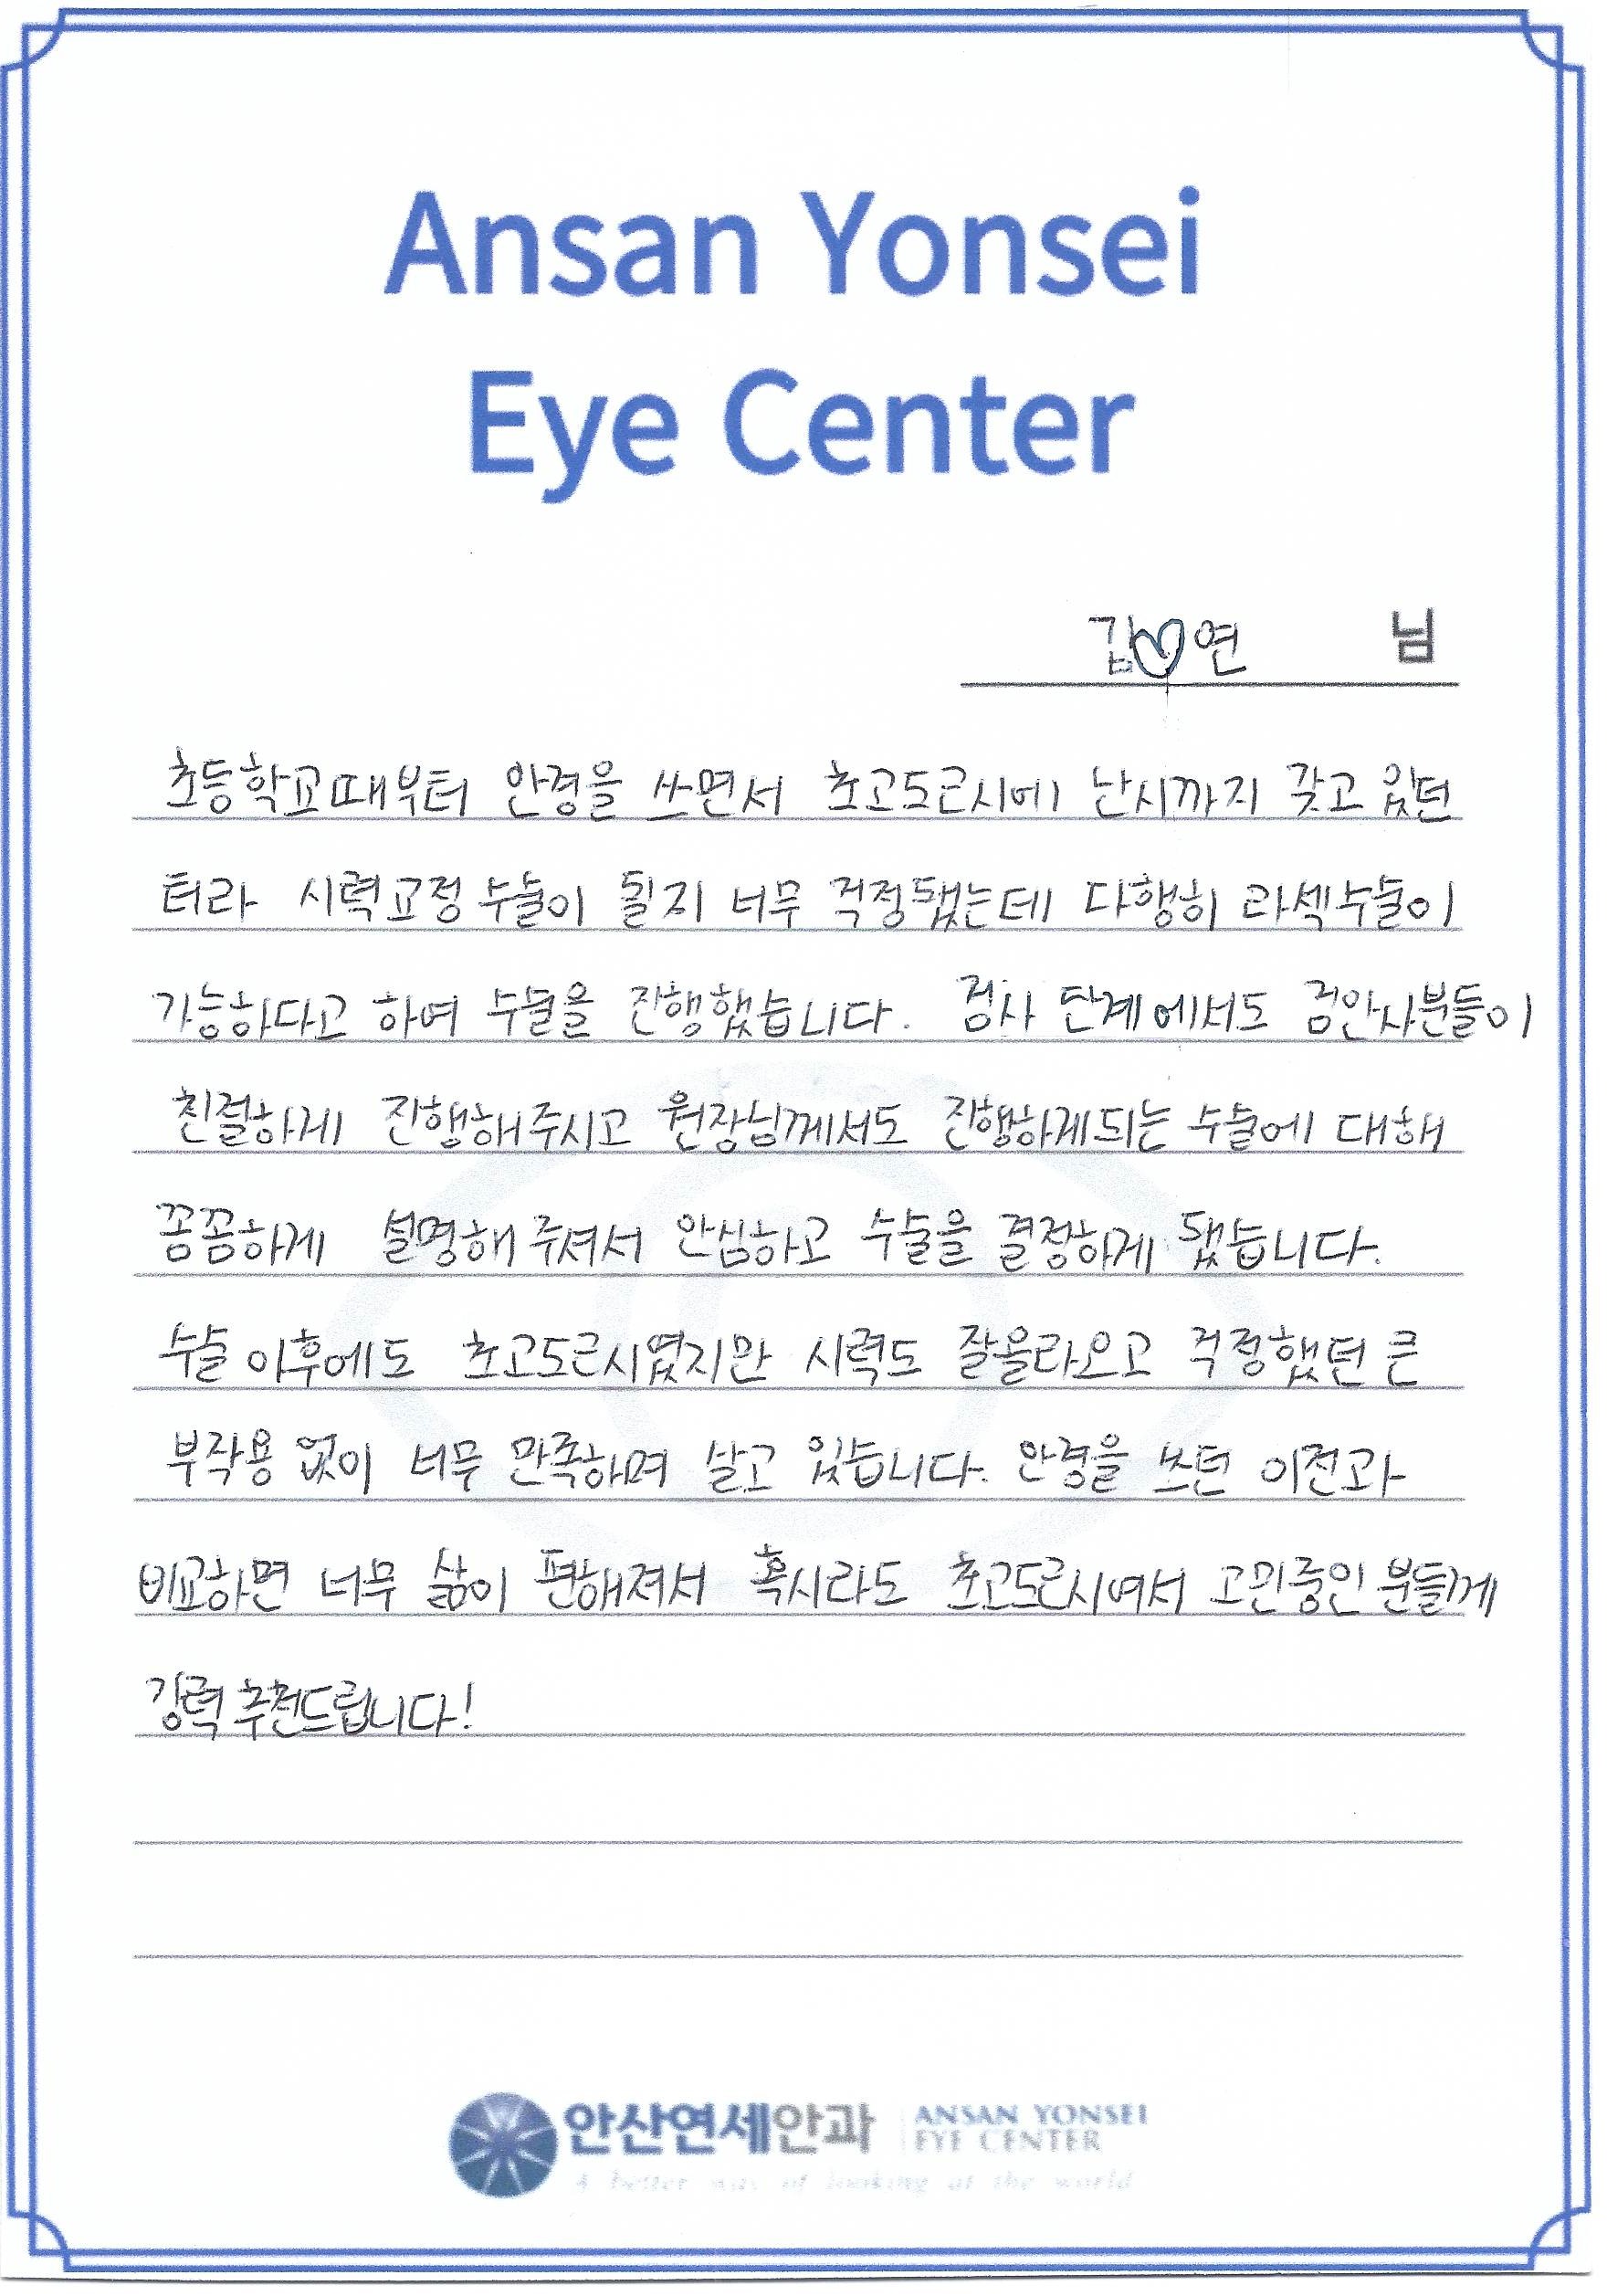 Ansan Yonsei
Eye Center
김♡연 님
초등학교때부터 안경을 쓰면서 초고도근시에 난시까지 갖고 있던
터라 시력교정 수술이 될지 너무 걱정됐는데 다행히 라섹수술이
가능하다고 하여 수술을 진행했습니다. 검사 단계에서도 검안사분들이
친절하게 진행해주시고 원장님께서도 진행하게되는 수술에 대해
꼼꼼하게 설명해 주셔서 안심하고 수술을 결정하게 됐습니다.
수술 이후에도 초고도근시였지만 시력도 잘올라오고 걱정했던 큰
부작용 없이 너무 만족하며 살고 있습니다. 안경을 쓰던 이전과
비교하면 너무 삶이 편해져서 혹시라도 초고도근시여서 고민중인 분들께
강력 추천드립니다!
안산연세안과 ANSAN YONSEI
EYE CENTER
A better way of looking at the world